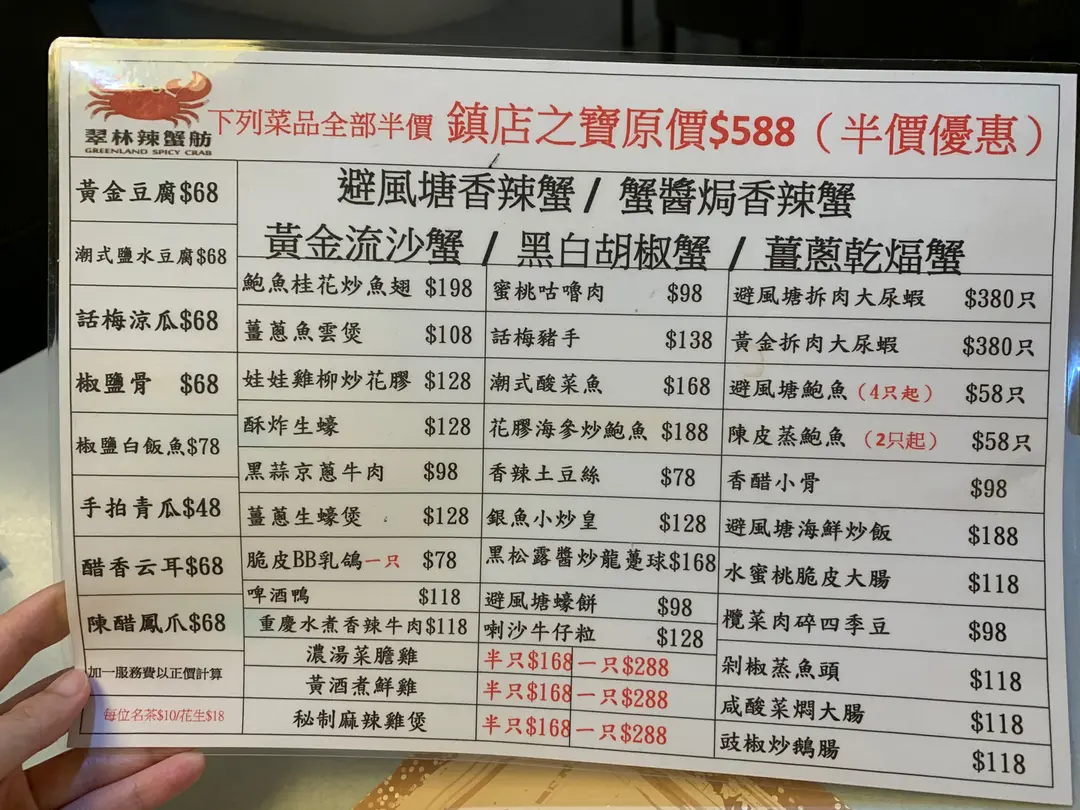 翠林辣蟹舫
GREENLAND SPICY CRAB
下列菜品全部半價 鎮店之寶原價$588（半價優惠）
避風塘香辣蟹 / 蟹醬焗香辣蟹
黃金流沙蟹 / 黑白胡椒蟹 / 薑蔥乾煏蟹
黃金豆腐$68
潮式鹽水豆腐$68
話梅涼瓜$68
椒鹽骨 $68
椒鹽白飯魚$78
手拍青瓜$48
醋香云耳$68
陳醋鳳爪$68
加一服務費以正價計算
每位名茶$10/花生$18
鮑魚桂花炒魚翅 $198
薑蔥魚雲煲 $108
娃娃雞柳炒花膠 $128
酥炸生蠔 $128
黑蒜京蔥牛肉 $98
薑蔥生蠔煲 $128
脆皮BB乳鴿一只 $78
啤酒鴨 $118
重慶水煮香辣牛肉$118
蜜桃咕嚕肉 $98
話梅豬手 $138
潮式酸菜魚 $168
花膠海參炒鮑魚 $188
香辣土豆絲 $78
銀魚小炒皇 $128
黑松露醬炒龍躉球$168
避風塘蠔餅 $98
喇沙牛仔粒 $128
濃湯菜膽雞 半只$168 一只$288
黃酒煮鮮雞 半只$168 一只$288
秘制麻辣雞煲 半只$168 一只$288
避風塘拆肉大尿蝦 $380只
黃金拆肉大尿蝦 $380只
避風塘鮑魚（4只起） $58只
陳皮蒸鮑魚（2只起） $58只
香醋小骨 $98
避風塘海鮮炒飯 $188
水蜜桃脆皮大腸 $118
欖菜肉碎四季豆 $98
剁椒蒸魚頭 $118
咸酸菜燜大腸 $118
豉椒炒鵝腸 $118